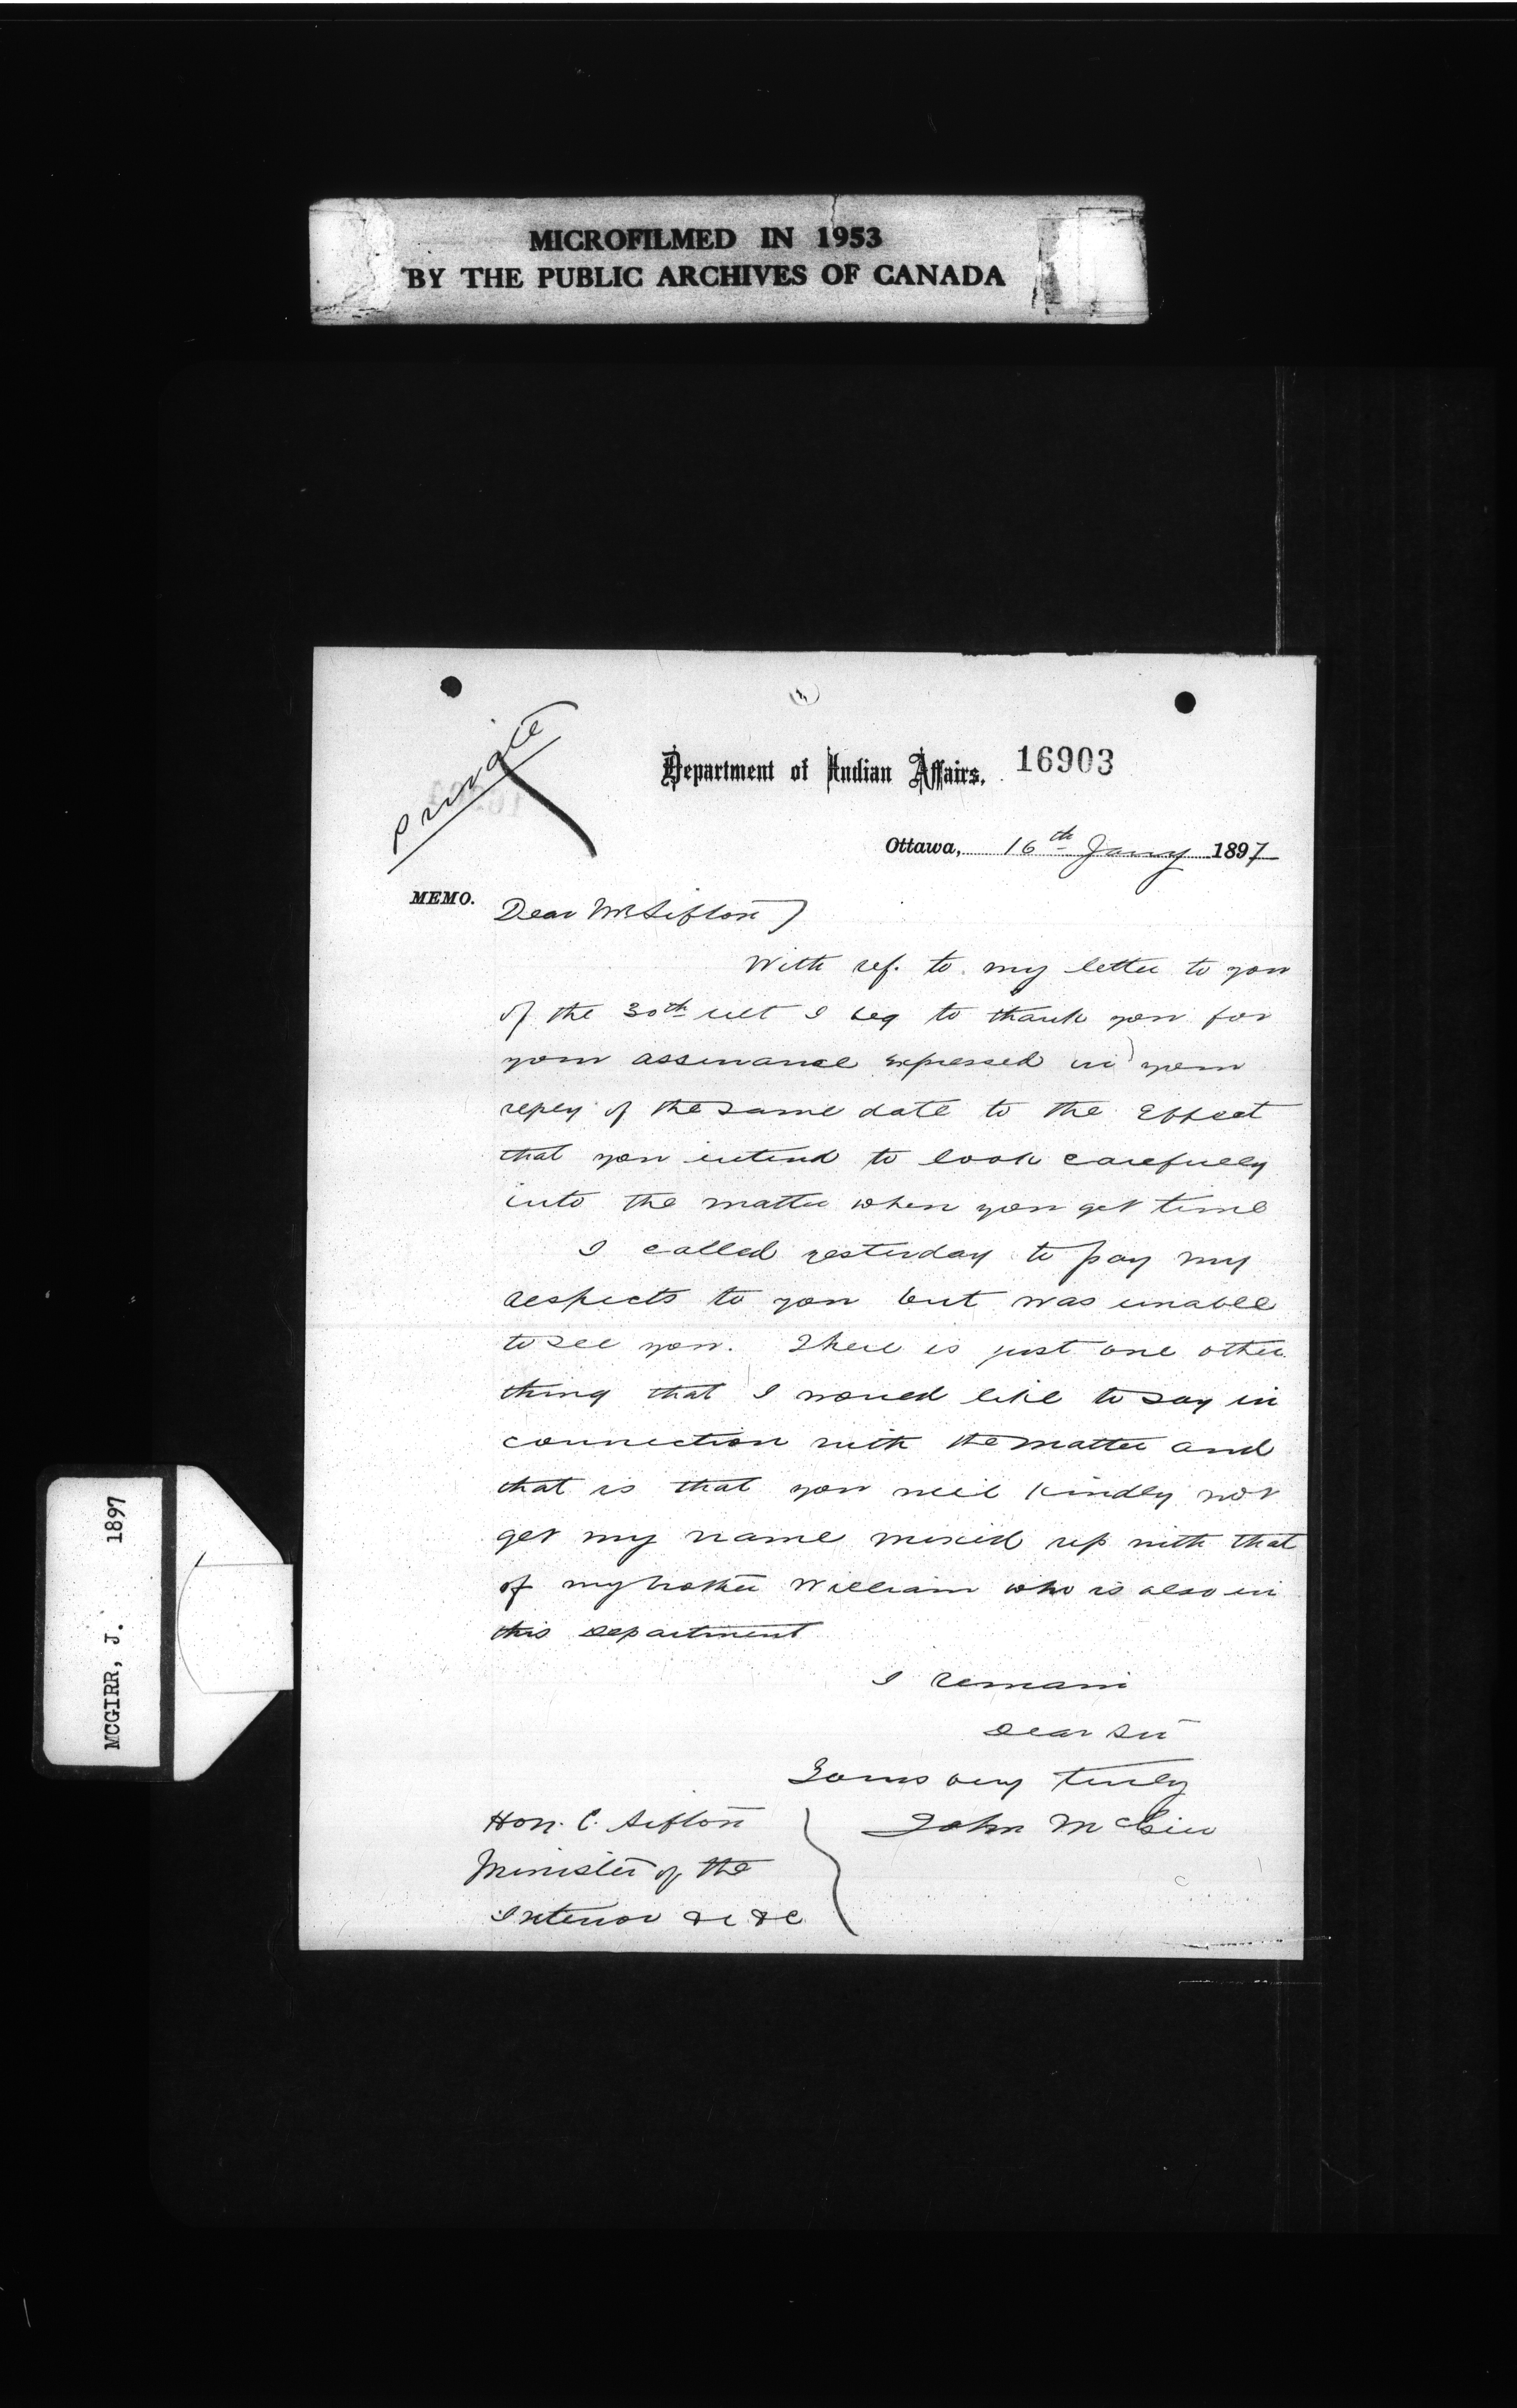 MICROFILMED IN 1953
BY THE PUBLIC ARCHIVES OF CANADA
private
Department of Indian Affairs.
16903
Ottawa, 16th Jany 1897
MEMO.
Dear Mr Sifton,
With ref. to my letter to you
of the 30th ult I beg to thank you for
your assurance expressed in your
reply of the same date to the effect
that you intend to look carefully
into the matter when you get time
I called yesterday to pay my
respects to you but was unable
to see you. There is just one other
thing that I would like to say in
connection with the matter and
that is that you will kindly not
get my name mixed up with that
of my brother William who is also in
this Department
I remain
Dear Sir
Yours very truly
John McGirr
Hon. C. Sifton
Minister of the
Interior &c &c
MCGIRR, J. 1897